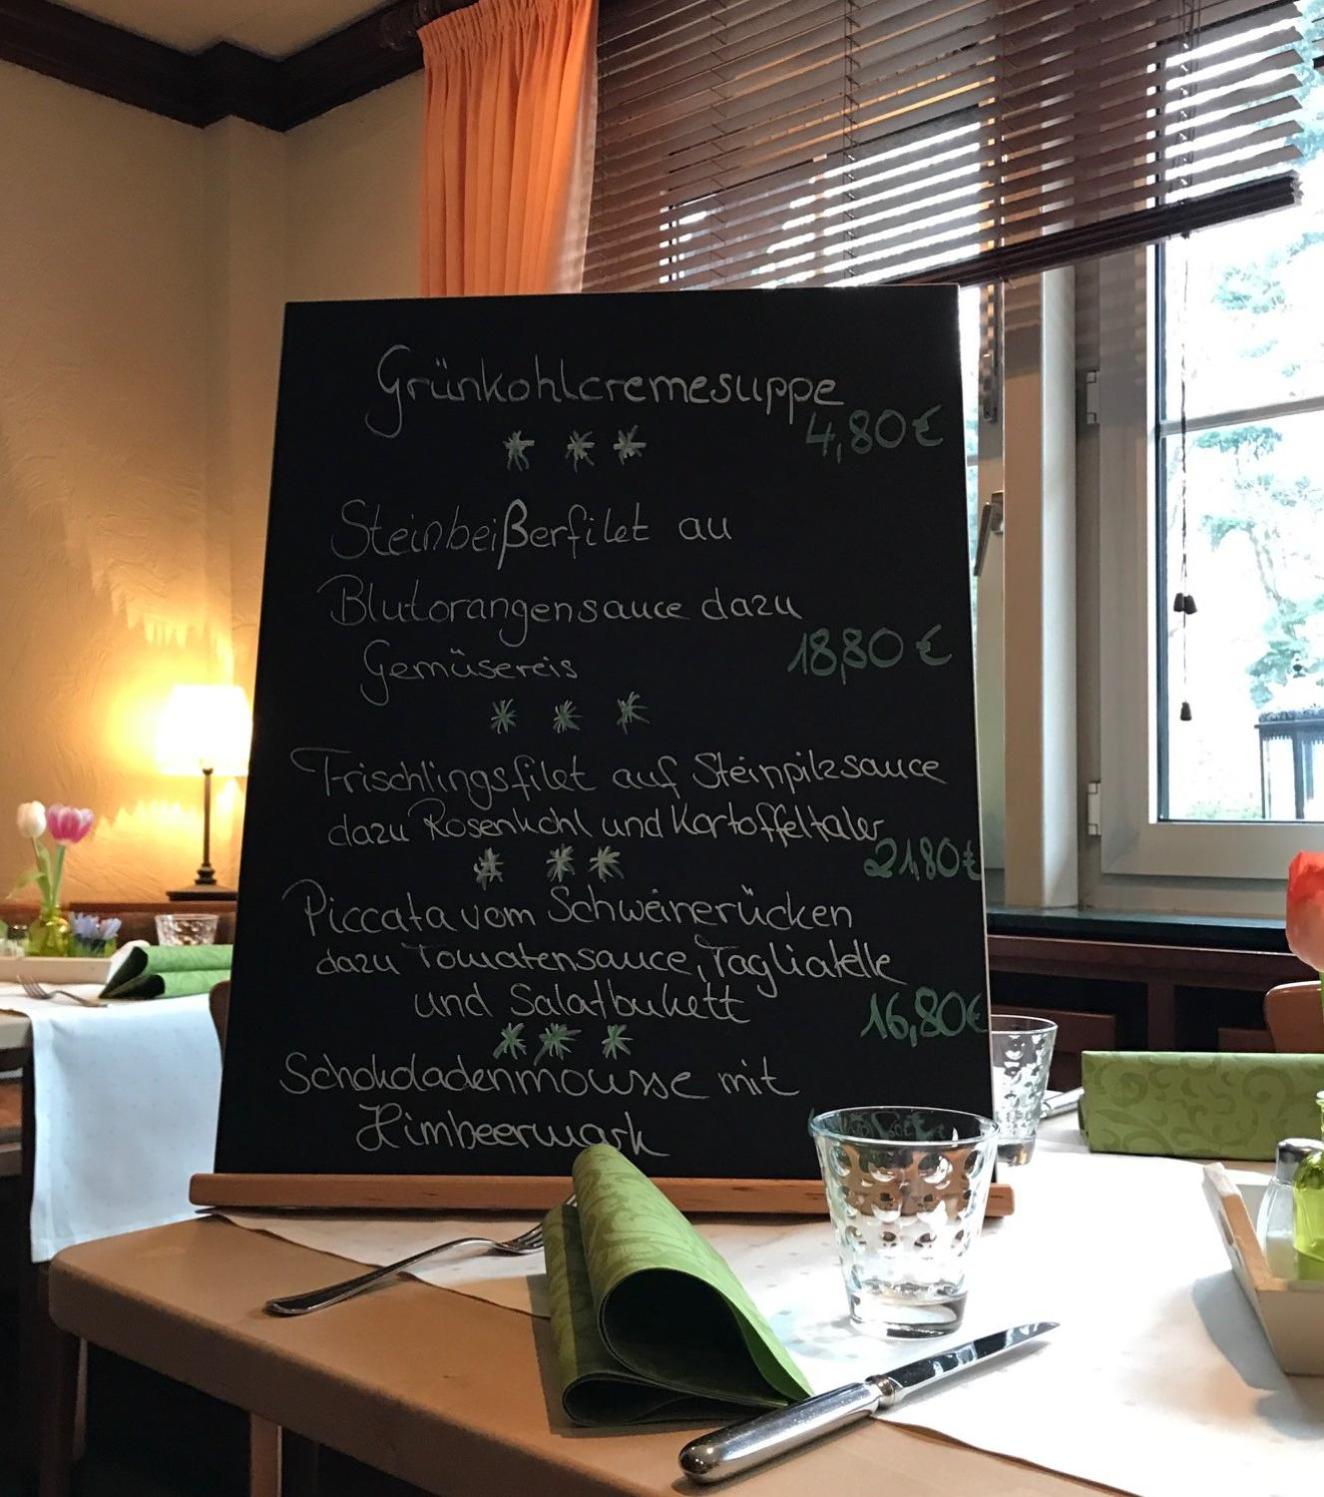 Grünkohlcremesuppe
4,80€
Steinbeißerfilet au
Blutorangensauce dazu
Gemüsereis
18,80 €
Frischlingsfilet auf Steinpilzsauce
dazu Rosenkohl und Kartoffeltaler
21,80€
Piccata vom Schweinerücken
dazu Tomatensauce, Tagliatelle
und Salatbukett
16,80€
Schokoladenmousse mit
Himbeermark